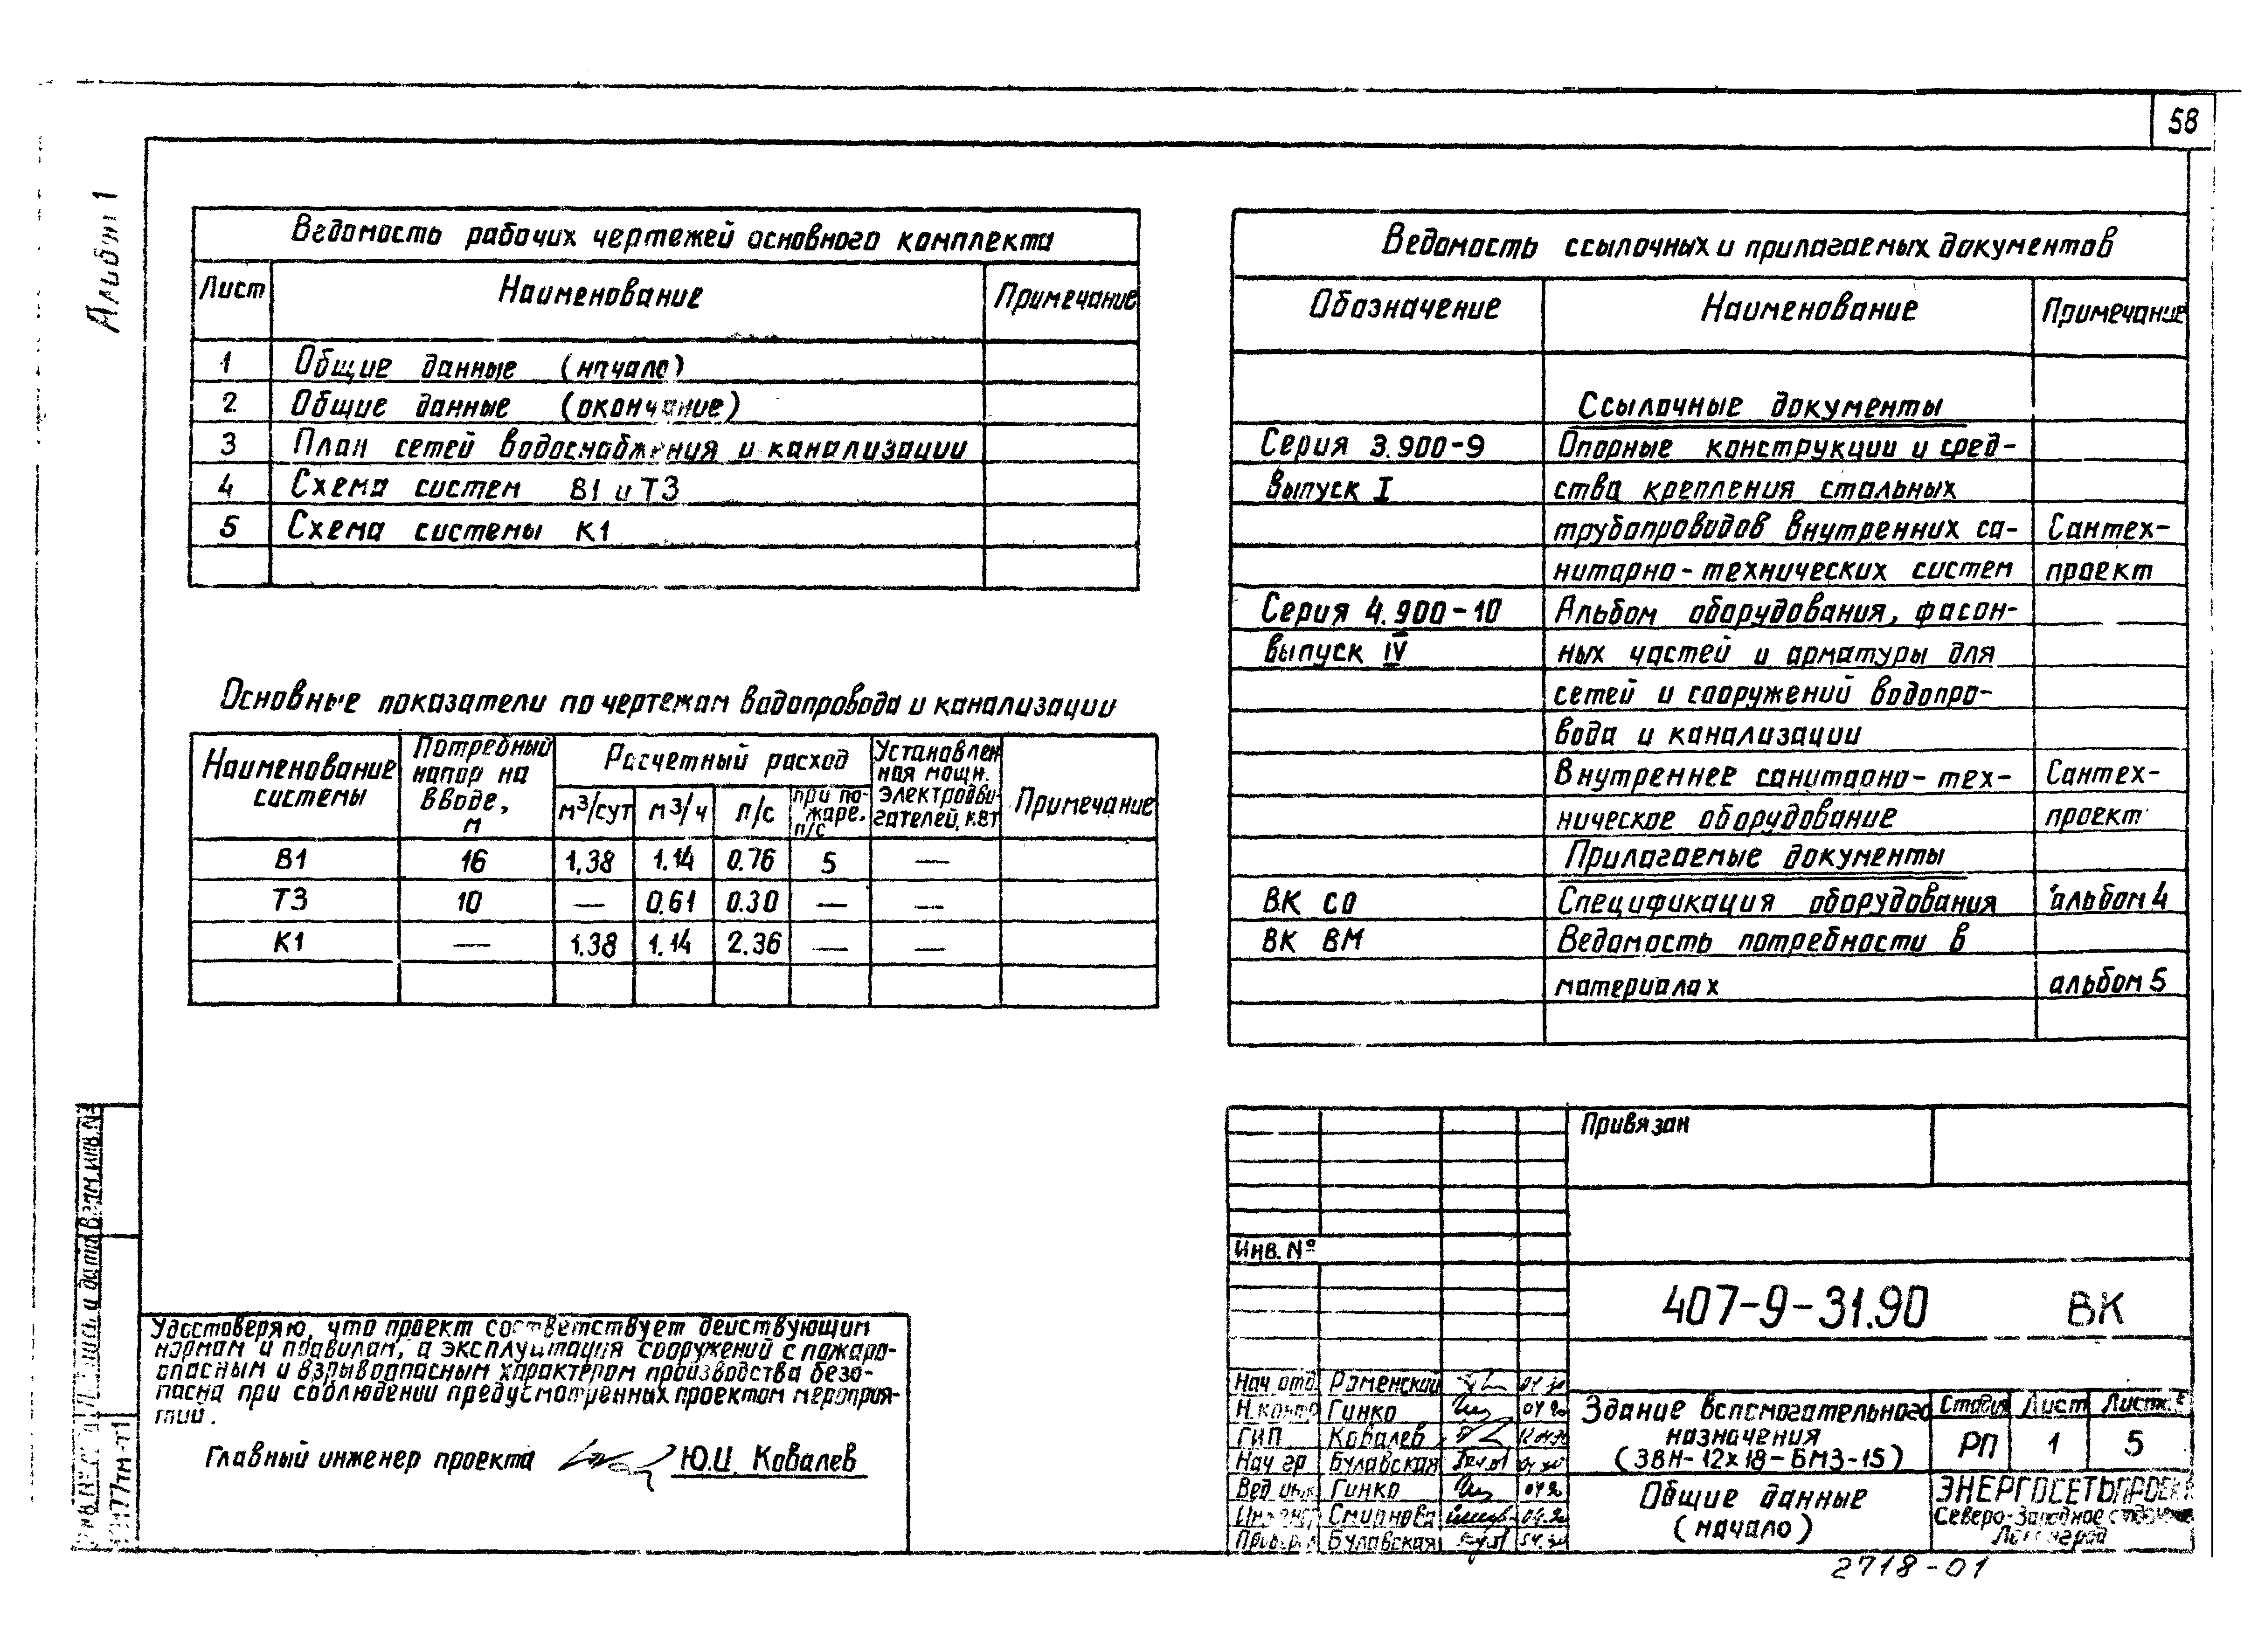 58
Альбом 1
Ведомость рабочих чертежей основного комплекта
Лист Наименование Примечание
1 Общие данные (начало)
2 Общие данные (окончание)
3 План сетей водоснабжения и канализации
4 Схема систем В1 и Т3
5 Схема системы К1
Основные показатели по чертежам водопровода и канализации
Наименование системы Потребный напор на вводе, м Расчетный расход Установлен ная мощн. электродви- гателей, квт Примечание
м³/сут м³/ч л/с при по- жаре, л/с
В1 16 1.38 1.14 0.76 5 —
Т3 10 — 0.61 0.30 — —
К1 — 1.38 1.14 2.36 — —
Ведомость ссылочных и прилагаемых документов
Обозначение Наименование Примечание
Ссылочные документы
Серия 3.900-9 Опорные конструкции и сред-
выпуск I ства крепления стальных
трубопроводов внутренних са- Сантех-
нитарно-технических систем проект
Серия 4.900-10 Альбом оборудования, фасон-
выпуск IV ных частей и арматуры для
сетей и сооружений водопро-
вода и канализации
Внутреннее санитарно-тех- Сантех-
ническое оборудование проект
Прилагаемые документы
ВК СО Спецификация оборудования альбом 4
ВК ВМ Ведомость потребности в
материалах альбом 5
Удостоверяю, что проект соответствует действующим
нормам и правилам, а эксплуатация сооружений с пожаро-
опасным и взрывоопасным характером производства безо-
пасна при соблюдении предусмотренных проектом мероприя-
тий.
Главный инженер проекта Ю.И. Ковалев
Взам. инв. №
Привязан
Инв. №
407-9-31.90 ВК
Нач отд Роменский
Н. контр Гинко 04 90
ГИП Ковалев
Нач гр Булавская
Вед инж Гинко
Инженер Смирнова 04.90
Провер Булавская
Здание вспомогательного
назначения
(ЗВН-12х18-БМЗ-15)
Стадия Лист Листов
РП 1 5
Общие данные
(начало)
ЭНЕРГОСЕТЬПРОЕКТ
Северо-Западное отделение
Ленинград
2718-01